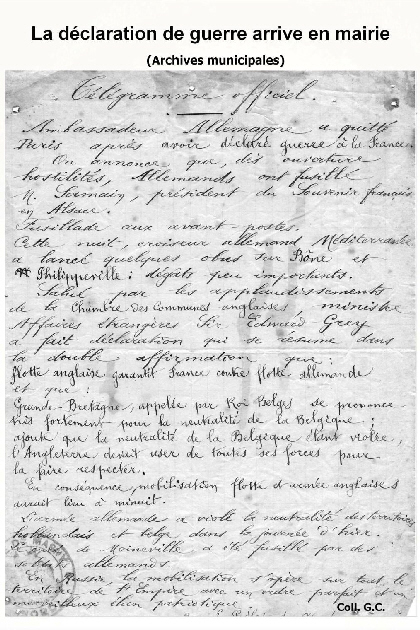 La déclaration de guerre arrive en mairie
(Archives municipales)
Télégramme officiel.
Ambassadeur Allemagne a quitté
Paris après avoir déclaré guerre à la France
On annonce que, dès ouverture
hostilités, Allemands ont fusillé
M. Samain, président du Souvenir français
en Alsace.
Fusillade aux avant-postes.
Cette nuit, croiseur allemand Méditerranée
a lancé quelques obus sur Bône et
Philippeville : dégâts peu importants.
Salué par les applaudissements
de la Chambre des Communes anglaises, ministre
Affaires étrangères Sir Edward Grey
a fait déclaration qui se résume dans
la double affirmation que :
flotte anglaise garantit France contre flotte allemande
et que :
Grande-Bretagne, appelée par Roi Belges se prononce
très fortement pour la neutralité de la Belgique ;
ajoute que la neutralité de la Belgique étant violée,
l'Angleterre devait user de toutes ses forces pour
la faire respecter.
En conséquence, mobilisation flotte et armée anglaises
aurait lieu à minuit.
L'armée allemande a violé la neutralité des territoires
hollandais et belge dans la journée d'hier.
de Moineville a été fusillé par des
allemands.
En Russie la mobilisation s'opère sur tout le
territoire de l'Empire avec un ordre parfait et un
merveilleux élan patriotique.
Coll. G.C.